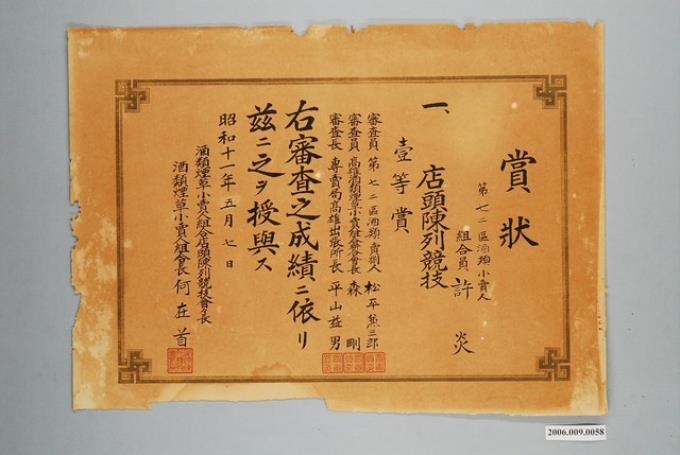 賞狀
第七二區酒類小賣人
組合員 許炎
一、店頭陳列競技
壹等賞
審查員 第七二區酒類賣捌人 松平無三郎
審查員 高雄酒類煙草小賣人組合會長 森 剛
審查長 專賣局高雄出張所長 平山益男
右審查之成績ニ依リ
茲ニ之ヲ授與ス
昭和十一年五月七日
酒類煙草小賣人組合店頭陳列競技會々長
酒類煙草小賣人組合長 何在首
2006.009.0058